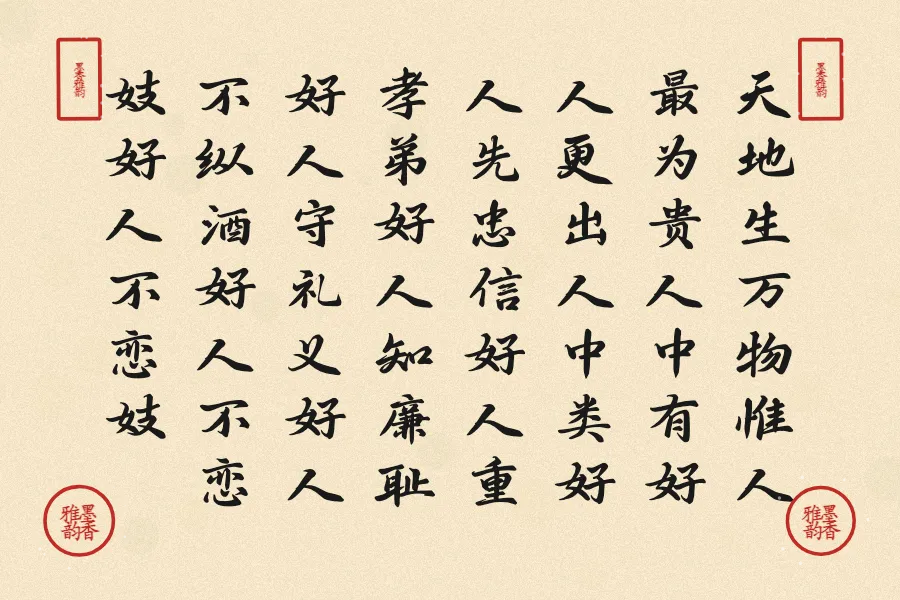 天地生万物惟人
最为贵人中有好
人更出人中类好
人先忠信好人重
孝弟好人知廉耻
好人守礼义好人
不纵酒好人不恋
妓好人不恋妓
墨香雅韵
墨香雅韵
墨香雅韵
墨香雅韵